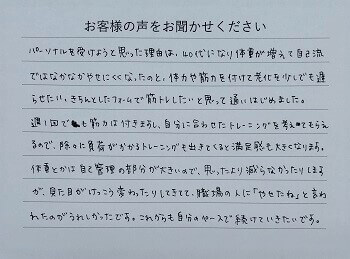 お客様の声をお聞かせください
パーソナルを受けようと思った理由は、40代になり体重が増えて自己流
ではなかなかやせにくくなったのと、体力や筋力を付けて老化を少しでも遅
らせたい、きちんとしたフォームで筋トレしたいと思って通いはじめました。
週1回でも筋力は付きますし、自分に合わせたトレーニングを考えてもらえ
るので、除々に負荷がかかるトレーニングも出きてくると満足感も大きくなります。
体重とかは自己管理の部分が大きいので、思ったより減らなかったりします
が、見た目がけっこう変わったりしてきてて、職場の人に「やせたね」と言わ
れたのがうれしかったです。これからも自分のペースで続けていきたいです。